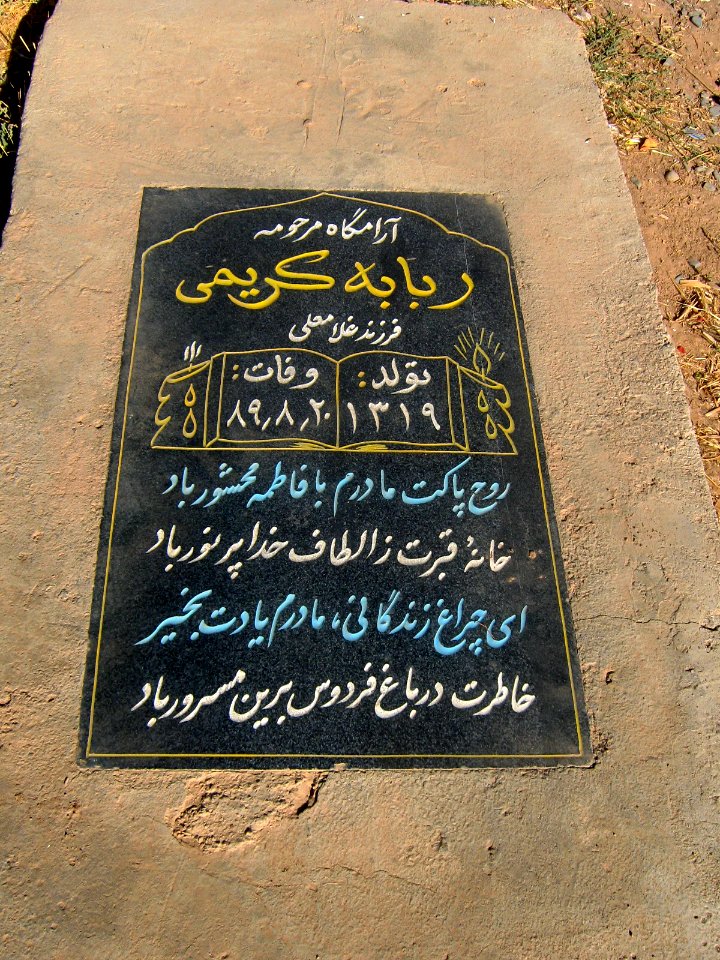 آرامگاه مرحومه
ربابه کریمی
فرزند غلامعلی
تولد: وفات:
۱۳۱۹ ۸۹٫۸٫۲۰
روح پاکت مادرم با فاطمه محشور باد
خانهٔ قبرت ز الطاف خدا پر نور باد
ای چراغ زندگانی، مادرم یادت بخیر
خاطرت در باغ فردوس برین مسرور باد